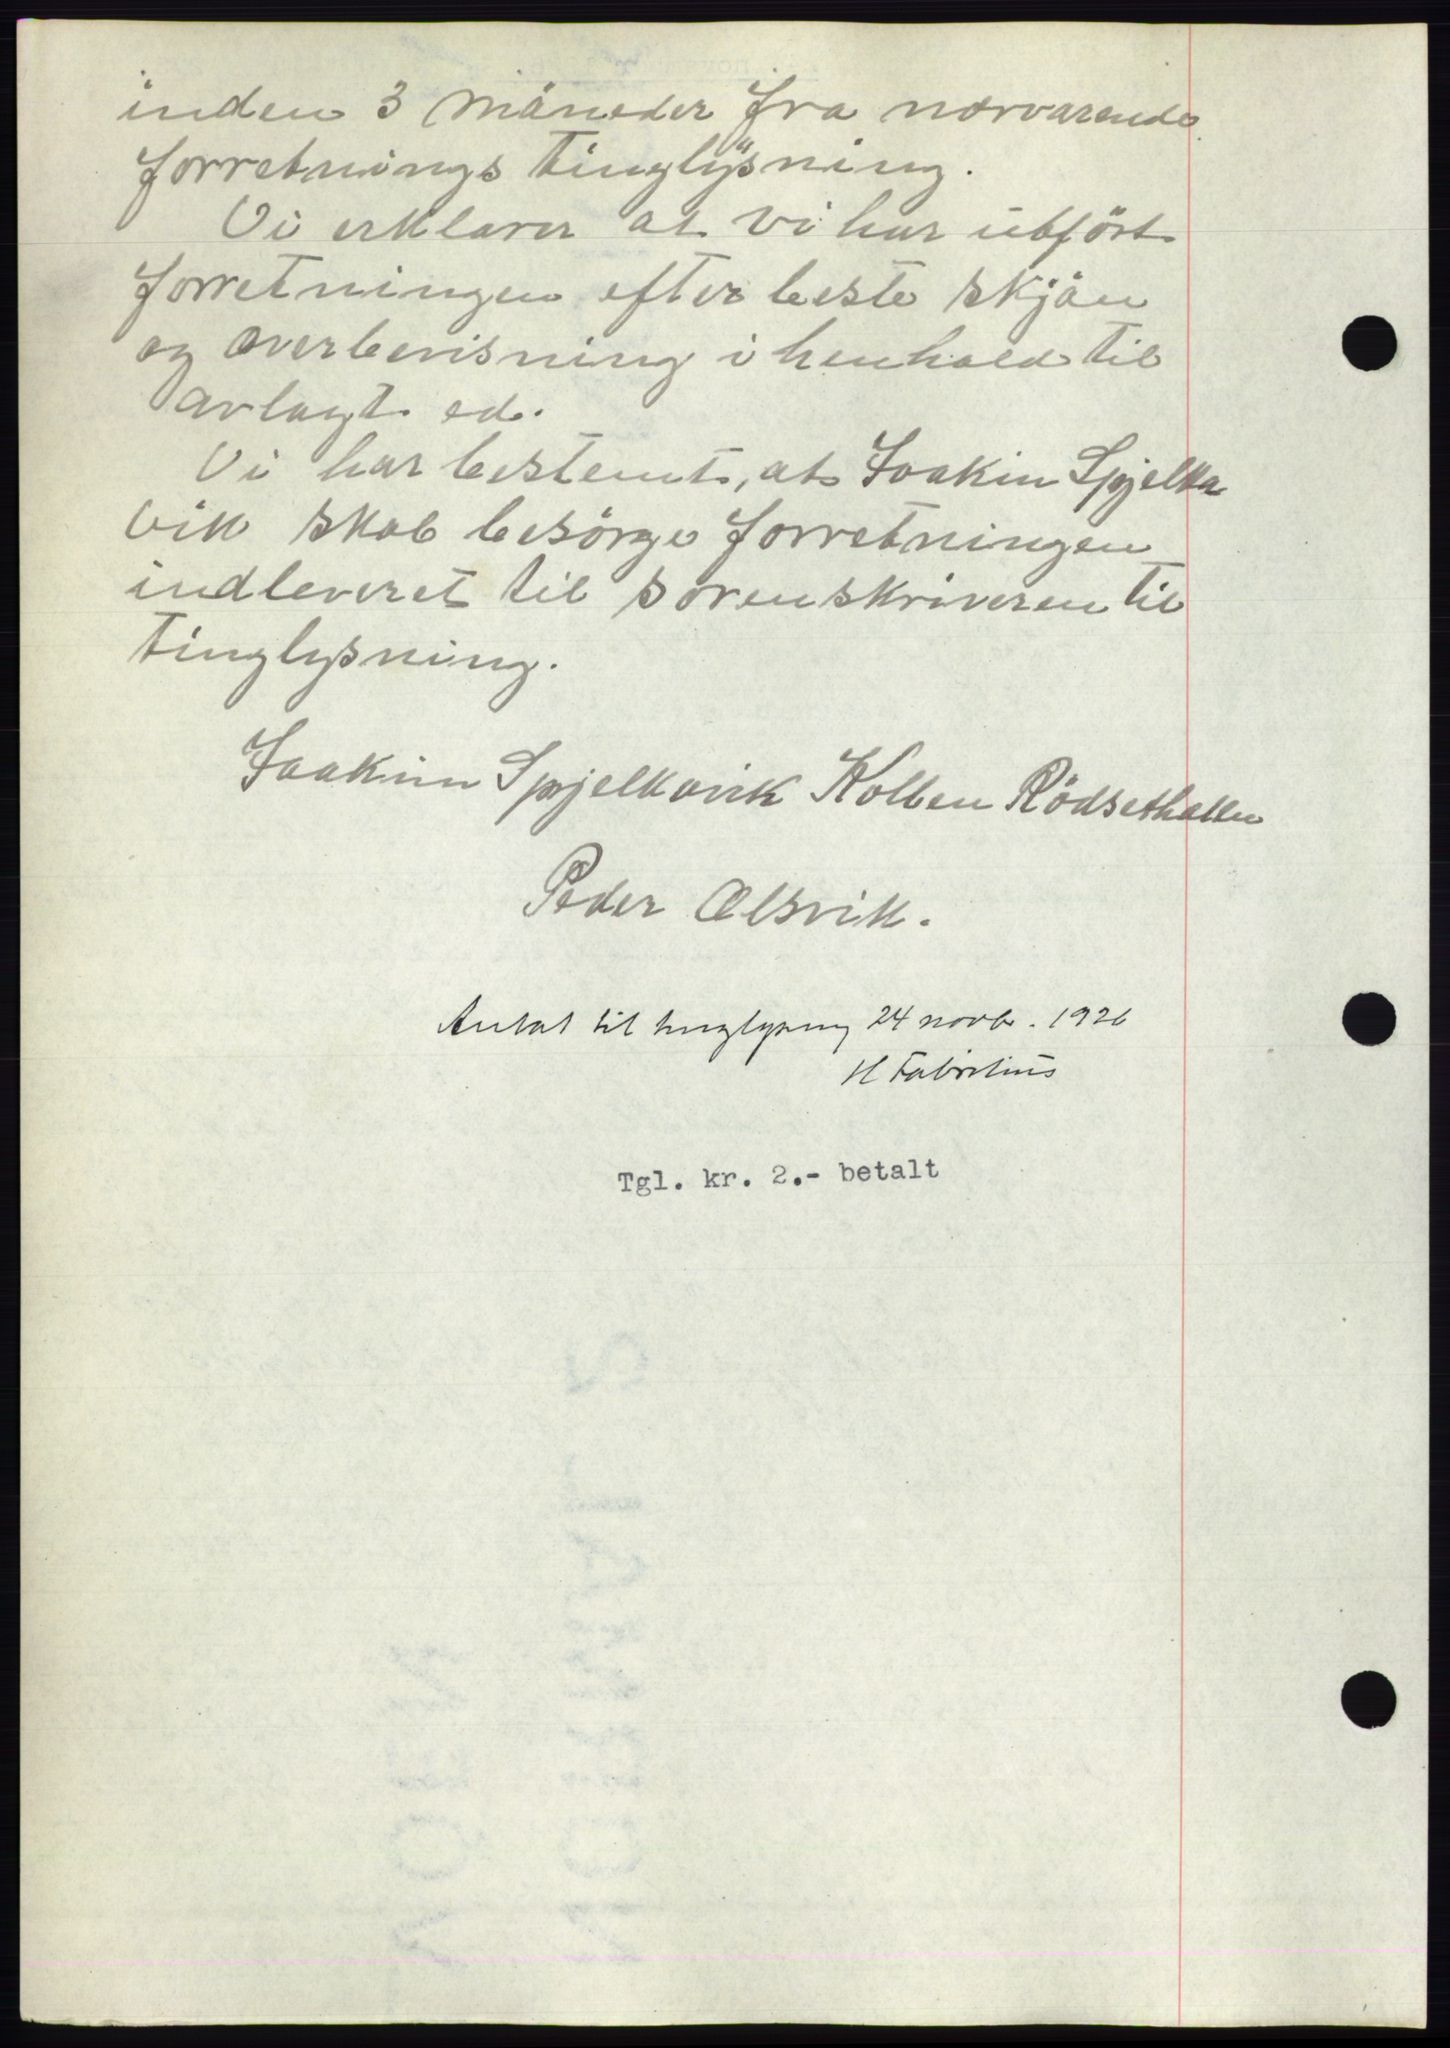 inden 3 måneder fra nærværende
forretnings tinglysning.
Vi erklærer at vi har utfört
forretningen efter beste skjön
og overbevisning i henhold til
avlagt ed.
Vi har bestemt, at Joakim Spjelka
vik skal besörge forretningen
indleveret til sorenskriveren til
tinglysning.
Joakim Spjelkavik Kolben Rödsethallen
Peder Olsvik.
Antat til tinglysning 24 novbr. 1926
H Fabritius
Tgl. kr. 2.- betalt